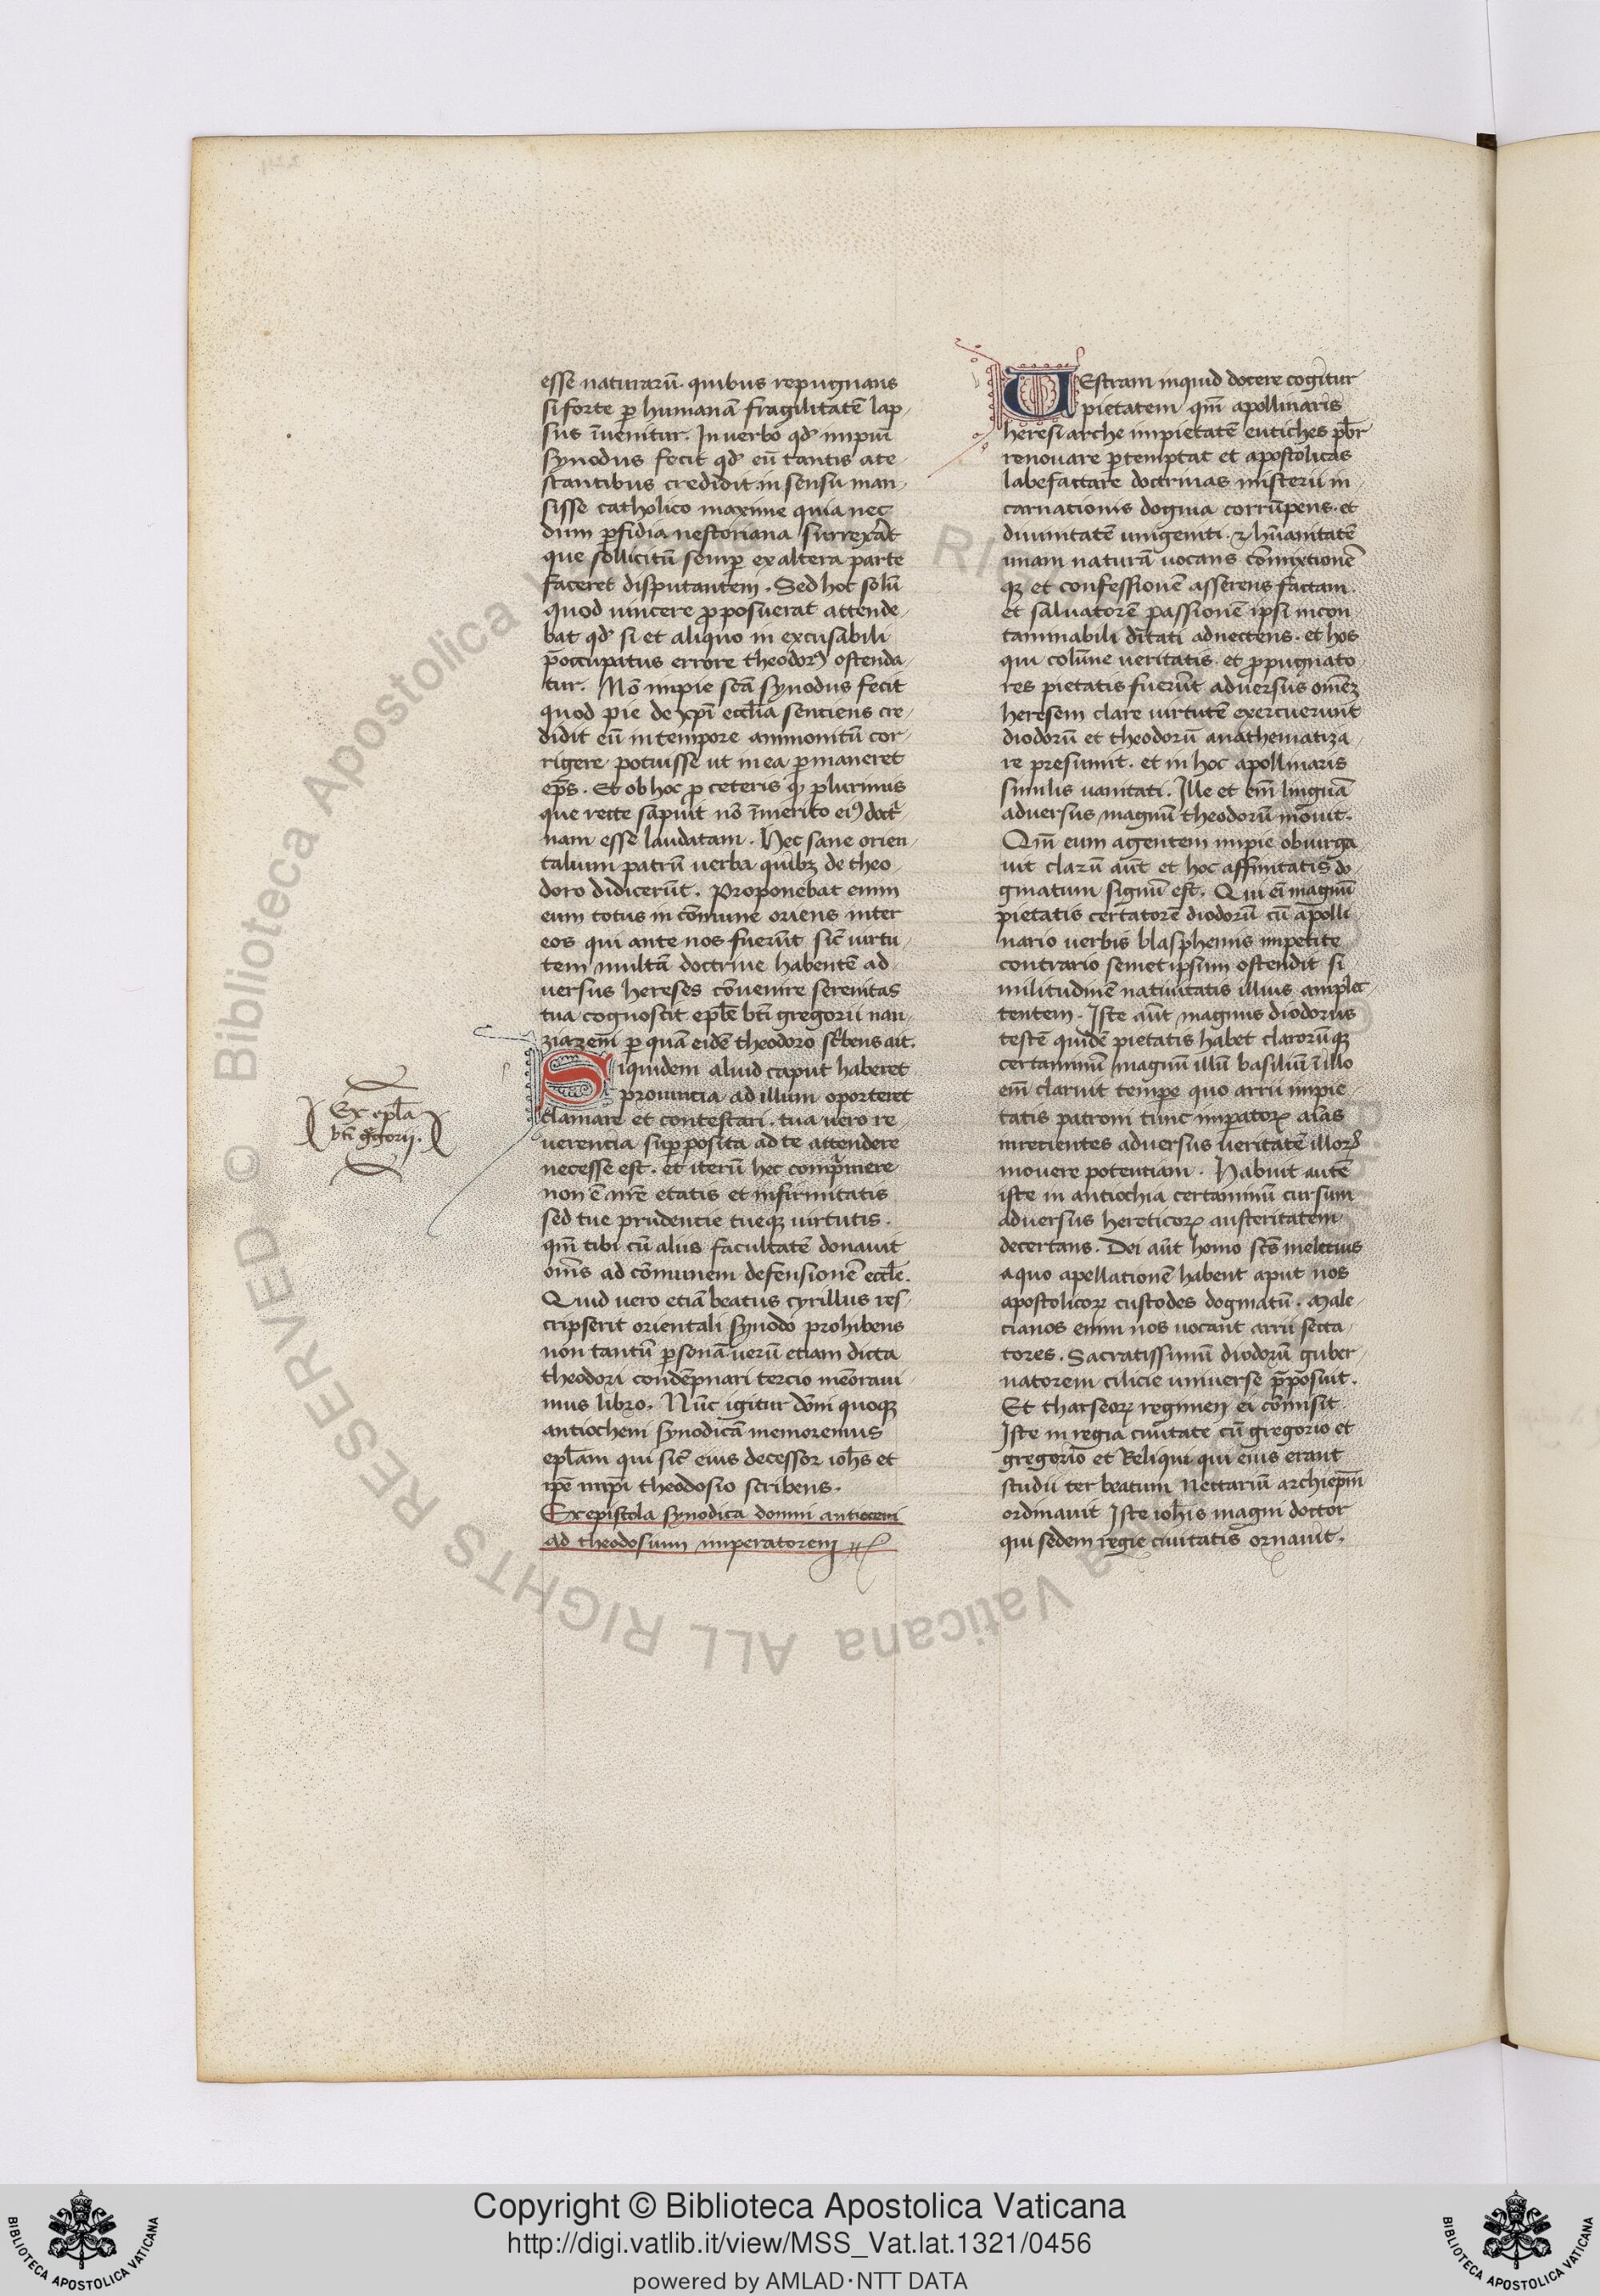 esse naturarū. quibus repugnans
si forte ꝑ humanā fragilitatē lap-
sus īuenitur. In uerbo qď impiū
synodus fecit qď eū tantis ate-
stantibus credidit in sensu man-
sisse catholico maxime quia nec
dum ꝑfidia nestoriana surrexāt
que sollicitū semꝑ ex altera parte
faceret disputantem. Sed hoc solū
quod uincere ꝓposuerat attende-
bat qď si et aliquo in excusabili
p̄occupatus errore theodorꝰ ostenda-
tur. Nō impie scā synodus fecit
quod pie de xpī eccl̄ia senciens cre-
didit eū in tempore ammonitū cor-
rigere potuisse ut in ea ꝑmaneret
ep̄s. Et ob hoc p ceteris q̄ plurimis
que recte sapuit nō īmerito eiꝰ doctⁱ
nam esse laudatam. Hec sane orien-
talium patrū uerba quibꝫ de theo-
doro didicerūt. Proponebat enim
eum totus in cōmune oriens inter
eos qui ante nos fuerūt sic̄ uirtu-
tem multā doctrine habentē ad-
uersus hereses cōuenire serenitas
tua cognoscit epl̄e bt̄i gregorii nan-
ziazeni ꝑ quā eidē theodoro scⁱbens ait.
Siquidem aliud caput haberet
prouincia ad illum oporteret
clamare et contestari. tua uero re-
uerencia suꝑposita ad te attendere
necesse est. et iterū hec compⁱmere
non ē nr̄e etatis et infirmitatis
sed tue prudencie tueqꝫ uirtutis.
qm̄ tibi cū aliis facultatē donauit
om̄s ad cōmunem defensionē eccl̄e.
Quid uero etiā beatus cyrillus res-
cripserit orientali synodo prohibens
non tantū ꝑsonā uerū etiam dicta
theodori condēpnari tercio mēoraui-
mus libro. Nūc igitur dōni quoqꝫ
antiocheni synodicā memoremus
epl̄am qui sic̄ eius decessor ioh̄s et
ip̄e imp̄i theodosio scribens.
Ex epistola synodica domni antioceni
ad theodosium imperatorem
Ex epl̄a
bt̄i gⁱgorii.
UEstram inquid docere cogitur
pietatem qm̄ apollinaris
heresiarche impietatē eutiches pb̄r
renouare ꝑtemptat et apostolicas
labefactare doctrinas misterii in-
carnationis dogma corrūpens. et
diuinitatē unigeniti. ⁊ hūanitatē
unam naturā uocans cōmixtionē
qꝫ et confessionē asserens factam.
et saluatorē passionē ipsi incon-
taminabili dītati adnectens. et hos
qui colūne ueritatis et ꝓpugnato-
res pietatis fuerūt aduersus om̄eꝫ
heresem clare uirtutē exercuerunt
diodorū et theodorū anathematiza-
re presumit. et in hoc apollinaris
similis uanitati. Ille et em̄ linguā
aduersus magnū theodorū mouit.
Qm̄ eum agentem impie obiurga
uit clarū aūt et hoc affinitatis do-
gmatum signū est. Qui ei magnū
pietatis certatorē diodorū cū apolli-
nario uerbis blasphemis impetite
contrario semetipsum ostendit si
militudinē natiuitatis illius amplec-
tentem. Iste aūt magnus diodorus
testē quidē pietatis habet clarorūqꝫ
certaminū magnū illū basiliū ī illo
em̄ claruit tempe quo arrii impie-
tatis patroni tunc imꝑatoꝝ aīas
inretientes aduersus ueritatē illoꝝ
mouere potentiam. Habuit autē
iste in antiochia certaminū cursum
aduersus hereticoꝝ austeritatem
decertans. Dei aūt homo sc̄s meletius
a quo apellationē habent aput nos
apostolicoꝝ custodes dogmatū. male-
cianos enim nos uocant arrii secta-
tores. Sacratissimū diodorū guber-
natorem cilicie uniuerse p̄posuit.
Et tharseoꝝ regimen ei cōmisit
Iste in regia ciuitate cū gregorio et
gregorio et Reliqui qui eius erant
studii ter beatum Nectariū archiep̄m
ordinauit Iste ioh̄is magni doctor
qui sedem regie ciuitatis ornauit.
Copyright © Biblioteca Apostolica Vaticana
http://digi.vatlib.it/view/MSS_Vat.lat.1321/0456
powered by AMLAD·NTT DATA
BIBLIOTECA APOSTOLICA VATICANA
BIBLIOTECA APOSTOLICA VATICANA